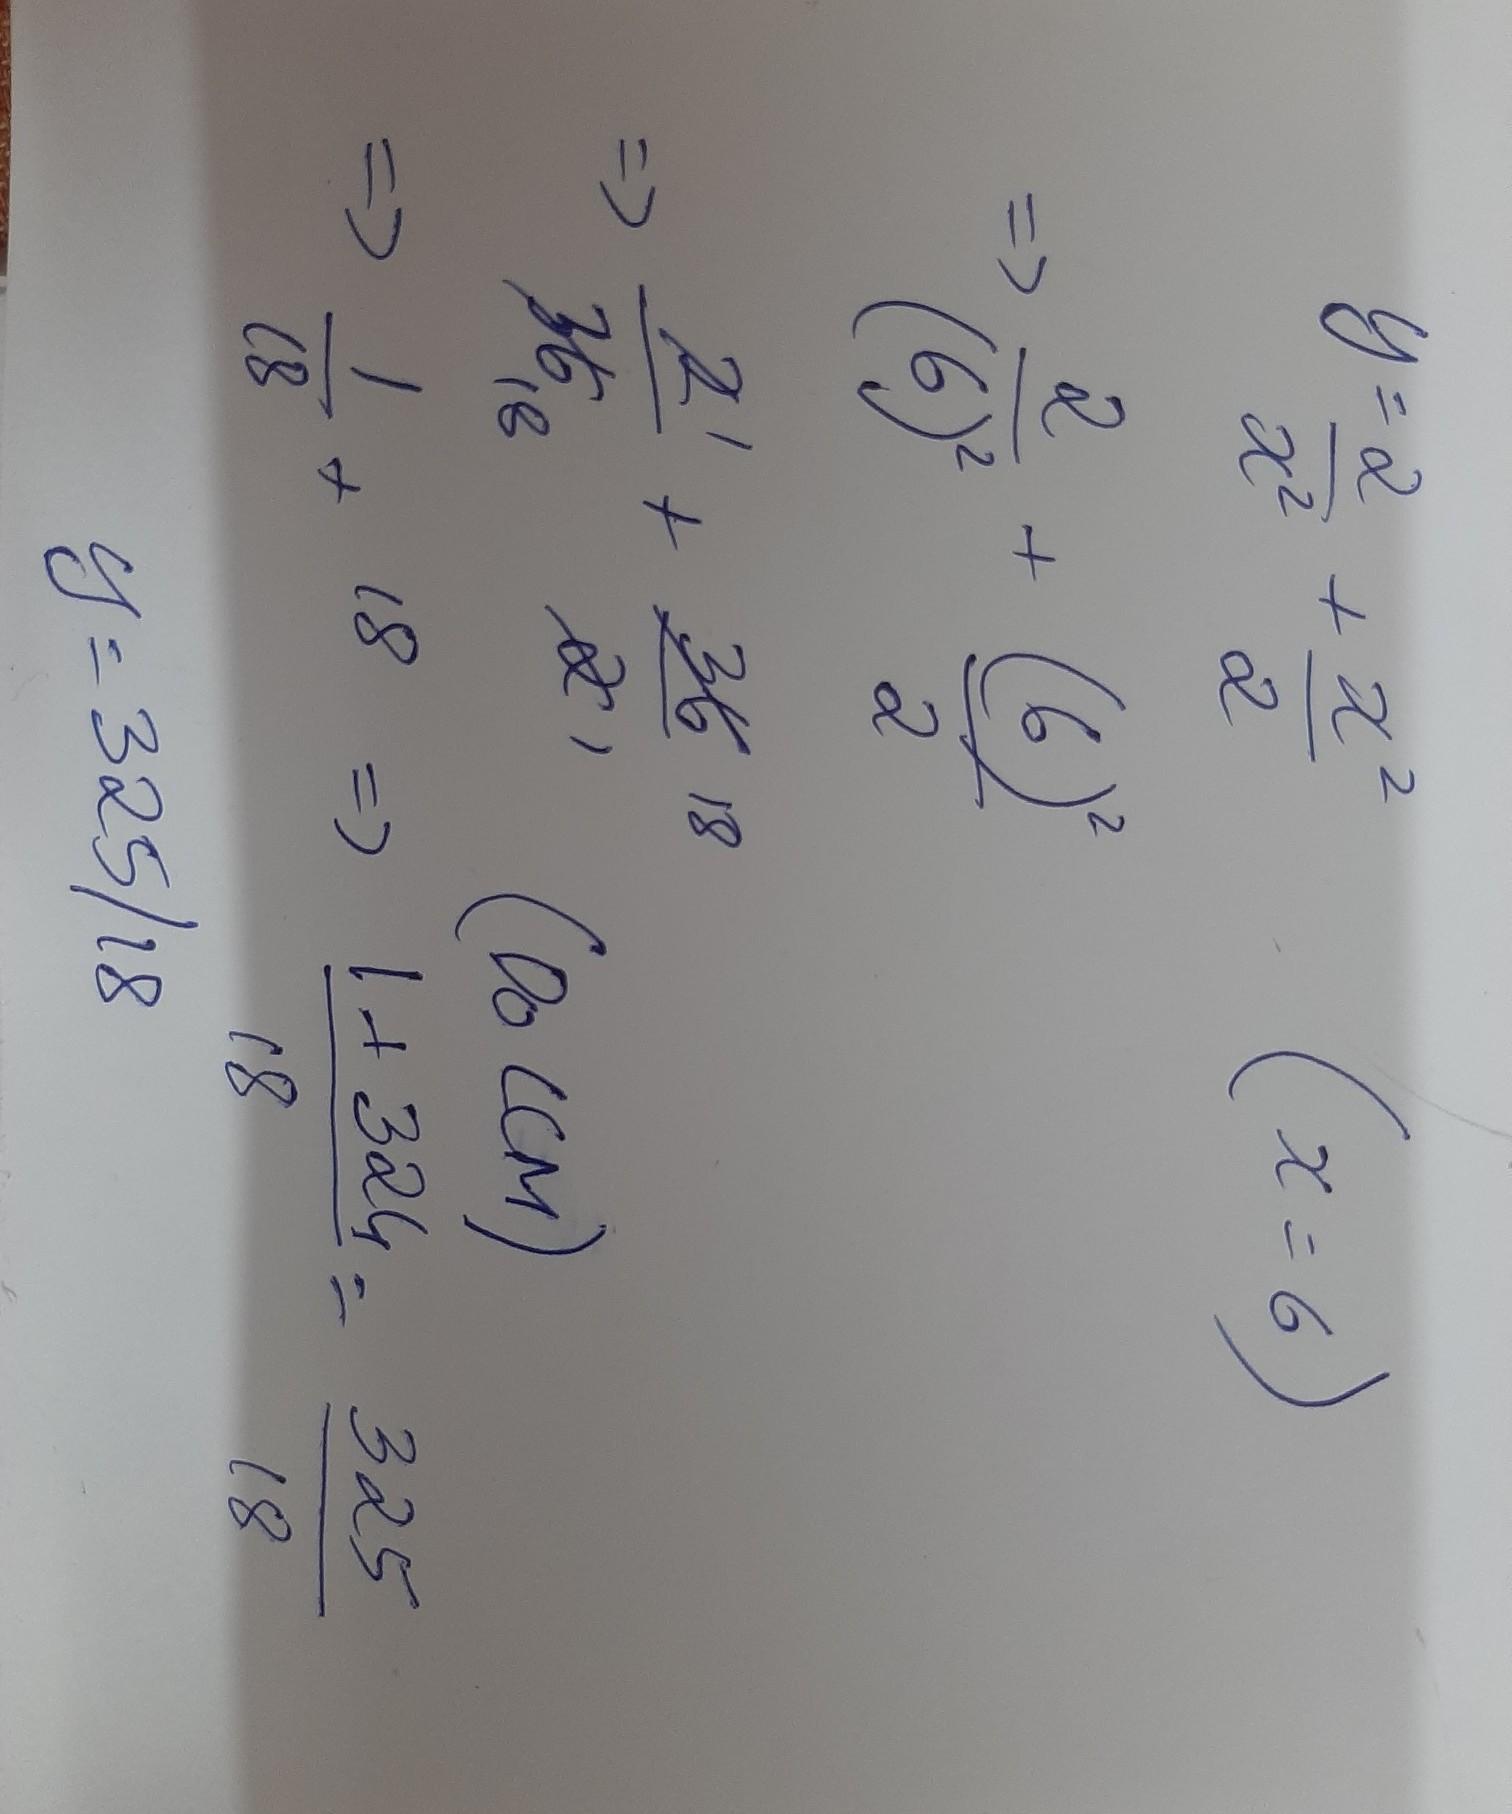 y = 2/x² + x²/2 (x = 6)
=> 2/(6)² + (6)²/2
=> 2 1/36 18 + 36 18/2 1
(Do LCM)
=> 1/18 + 18 => 1 + 324/18 = 325/18
y = 325/18